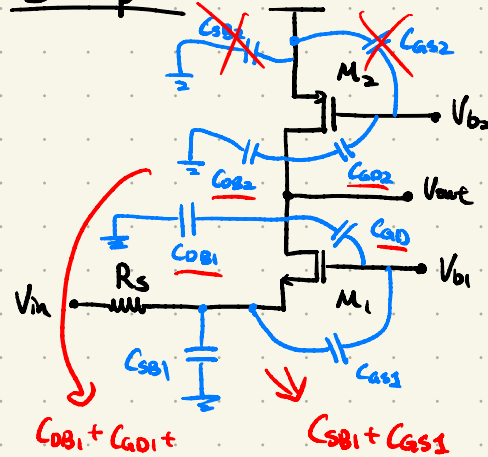 CSB2
CGS2
M2
Vb2
CDB2
CGD2
Vout
CDB1
CGD
Rs
Vin
M1
Vb1
CSB1
CGS1
CDB1 + CGD1 +
CSB1 + CGS1